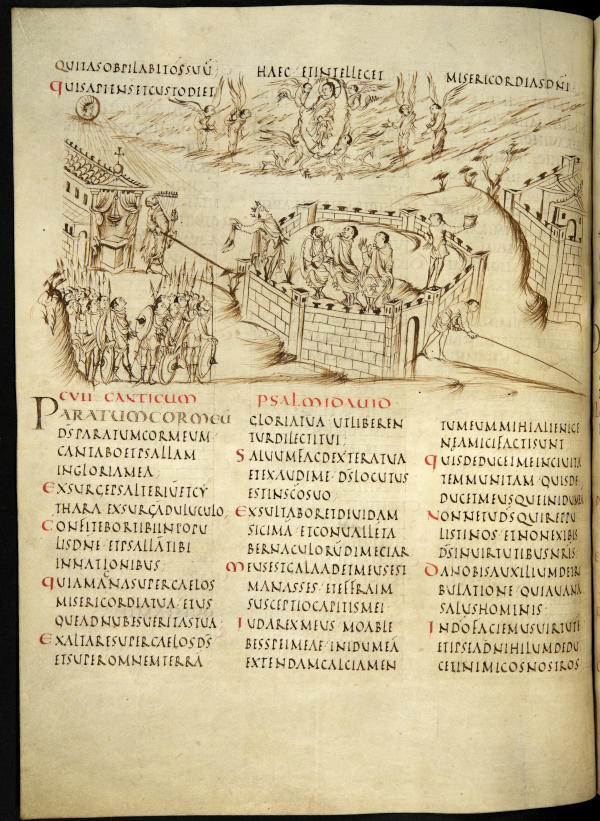 QUITASOBPILABITOSSUU
QUISAPIENSETCUSTODIET
HAEC ETINTELLEGET
MISERICORDIASDNI
CVII CANTICUM
PARATUMCORMEU
DSPARATUMCORMEUM
CANTABOETPSALLAM
INGLORIAMEA
EXSURGEPSALTERIUETCY
THARA EXSURGADILUCULO
CONFITEBORTIBIINPOPU
LISDNE ETPSALLATIBI
INNATIONIBUS
QUIAMAGNASUPERCAELOS
MISERICORDIATUA ETUS
QUEADNUBESUERITASTUA
EXALTARESUPERCAELOSDS
ETSUPEROMNEMTERRA
PSALMIDAVID
GLORIATUA UTLIBEREN
TURDILECTITUI
SALUUMFACDEXTERATUA
ETEXAUDIME DSLOCUTUS
ESTINSCOSUO
EXSULTABORETDIUIDAM
SICIMA ETCONUALLETA
BERNACULORUDIMECIAR
MEUSESTGALAADETMEUSEST
MANASSES ETEFFRAIM
SUSCEPTIOCAPITISMEI
IUDAREXMEUS MOABLE
BESSPEIMEAE INIDUMEA
EXTENDAMCALCIAMEN
TUMEUMMIHIALIENIGE
NEAMICIFACTISUNT
QUISDEDUCETMEINCIUITA
TEMMUNITAM QUISDE
DUCETMEUSQUEINIDUMEA
NONNETUDSQUIREPPU
LISTINOS ETNONEXIBIS
DSINUIRTUTIBUSNRIS
DANOBISAUXILIUMDETRI
BULATIONE QUIAUANA
SALUSHOMINIS
INDOFACIEMUSUIRTUTE
ETIPSEADNIHILUMDEDU
CETINIMICOSNOSTROS